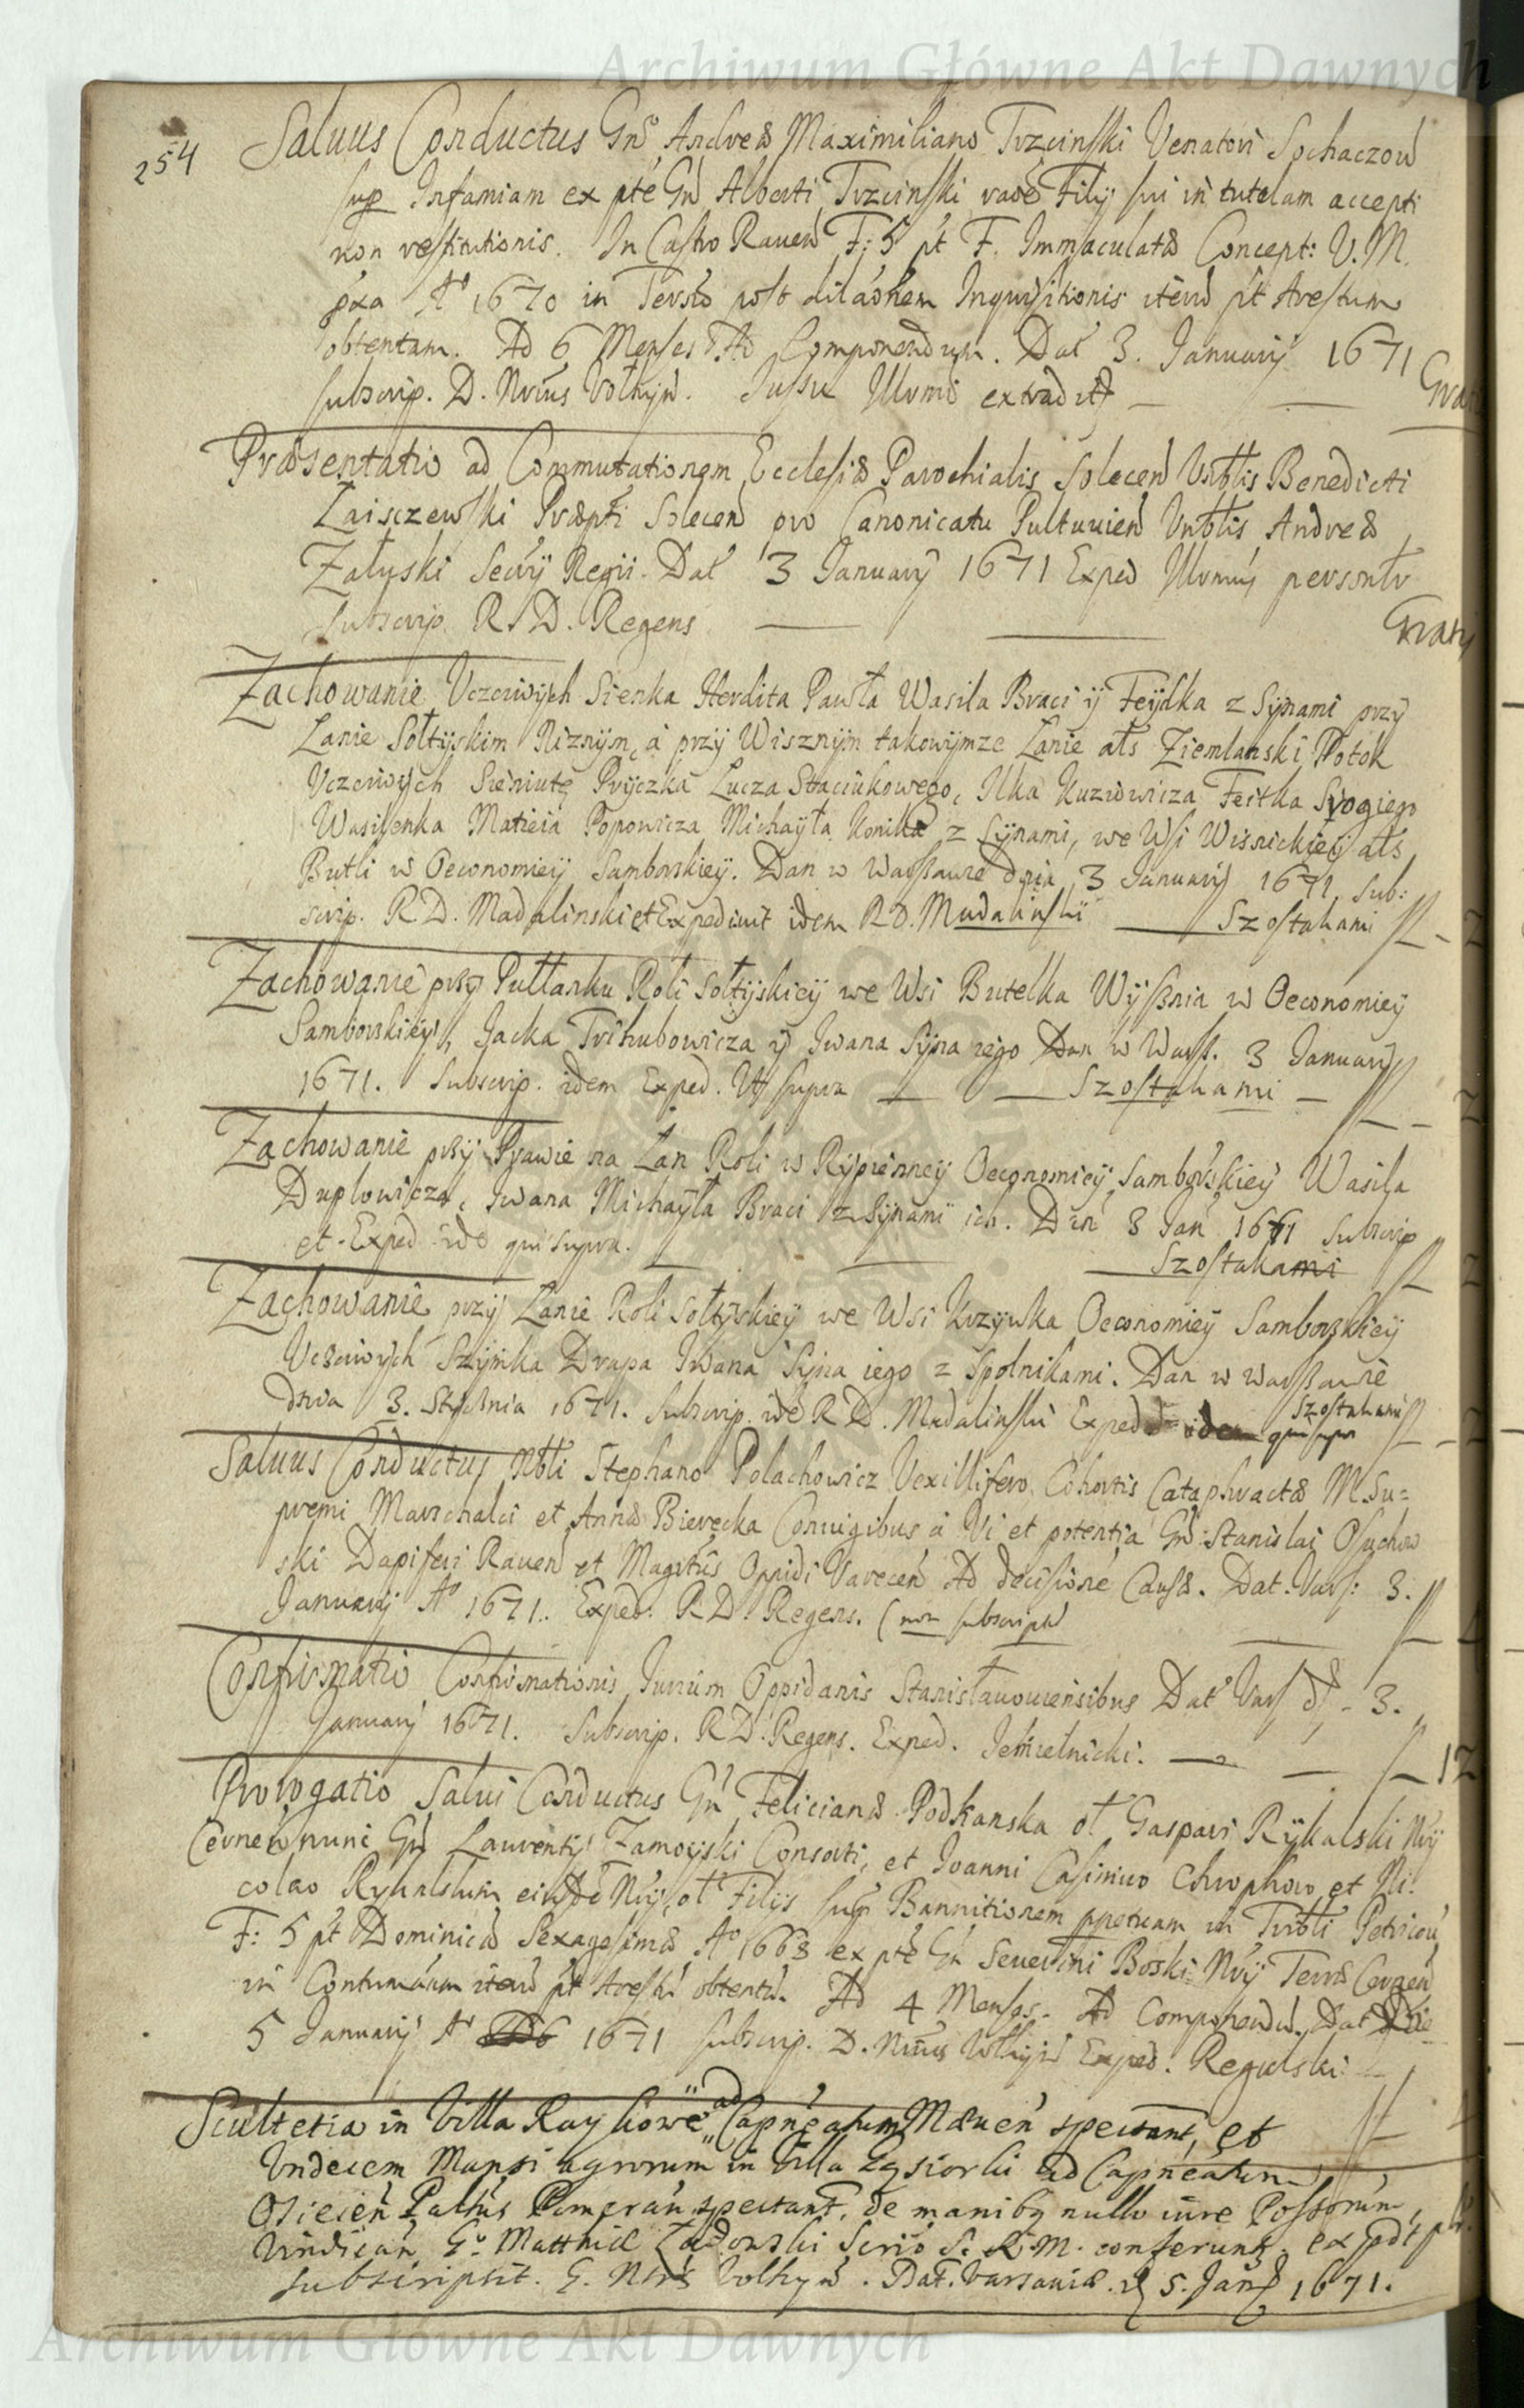 Archiwum Główne Akt Dawnych
254
Saluus Conductus Gnso Andreæ Maximiliano Trzcinski Venatori Sochaczow
sup Infamiam ex pte Gn Alberti Trzcinski Filij sui in tutelam accepti
non restitutionis. In Castro Rauen F: 5 pt F. Immaculatæ Concept: V. M.
pxa Ao 1670 in post dilaonem Inquisitionis pt Arestum
obtentam. Ad 6 Menses Ad Componendum. Dat 3. Januarij 1671
subscrip. D. Nrius Volhyn. Jussu Illrmi extradit — — Gratis
Præsentatio ad Commutationem Ecclesiæ Parochialis Solecen Vnblis Benedicti
Zaisczewski Præpti Solecen pro Canonicatu Pultuuien Vnblis Andreæ
Załuski Secrij Regii. Dat 3 Januarij 1671 Exped Illrmus personlr
subscrip. R. D. Regens — — Gratis
Zachowanie Vczciwych Sienka Herdita Pawła Wasila Braci ÿ Feÿdka z Sÿnami przÿ
Łanie Sołtÿskim Niznÿm, á przÿ Wisznÿm takowÿmze Łanie als Ziemlanski Potok
Vczciwÿch Sieniutę Prÿczka Lucza Staciukowego, Ilka Kuziowicza Feitka Srogiego
Wasilenka Matieia Popowicza Michaÿła Konika z Sÿnami, we Wsi Wisnickieÿ als
Butli w Oeconomieÿ Samborskieÿ. Dan w Warszawie Dnia 3 Januarij 1671. Sub:
scrip. R. D. Madalinski et Expediuit idem R. D. Madalinski — Szostakami
Zachowanie przÿ Pułłanku Roli Sołtÿskieÿ we Wsi Butelka Wÿsznia w Oeconomieÿ
Samborskieÿ, Jacka Trchubowicza ÿ Iwana Sÿna iego Dan w Wars. 3 Januarij
1671. Subscrip. idem Exped. Vt supra — — Szostakami —
Zachowanie przÿ Prawie na Łan Roli w Rÿpianneÿ Oeconomieÿ Samborskieÿ Wasila
Duplowicza, Iwana Michaÿła Braci z Sÿnami ich. Dan 3 Jan 1671 Subscrip
et Exped ide qui supra. — — Szostakami
Zachowanie przÿ Łanie Roli Sołtÿskieÿ we Wsi Krzÿwka Oeconomieÿ Samborskieÿ
Vczciwÿch Szÿmka Drapa Iwana Sÿna iego z Spolnikami. Dan w Warszawie
Dnia 3. Stÿcznia 1671. Subscrip. ide R D. Madalinski Exped idem qui supra Szostakami
Saluus Conductus Nbli Stephano Polachowicz Vexillifero Cohortis Cataphractæ M. Su=
premi Marschalci et Annæ Bierecka Coniugibus á Vi et potentia Gn: Stanislai Osuchow
ski Dapiferi Rauen et Magrtus Oppidi Varecen Ad decisione Causæ. Dat. Vars: 3.
Januarij Ao 1671. Exped: R. D. Regens. (non subscript)
Confirmatio Confirmationis Iurium Oppidanis Stanisłauouiensibus Dat Vars d - 3.
Januarij 1671. Subscrip. R. D. Regens. Exped. Jemielnicki. — — 12
Prorogatio Salui Conductus Gn Felicianæ Podkanska ol Gaspari Rÿkalski Nrij
Cernen nunc Gn Laurentij Zamoyski Consorti, et Joanni Casimiro Chrophow et Ni:
colao Rykalskim eiusde Nrij, ol Filijs sup Bannitionem ppetuam in Trbli Petricou
F: 5 pt Dominica Sexagesimæ Ao 1668 ex pte Gn Seuerini Boski Nrij Terræ Cernen
in Contumaciam pt Arestu obtentu. Ad 4 Menses. Ad Componendu. Dat Die
5 Januarij Ao 1671 subscrip. D. Nrius Volhyn Exped. Regulski.
Scultetia in Villa Raykowe ad Capneatum Mæuen spectant, et
Vndecem Mansi agrorum in Villa Zgsiorki ad Capneatum
Osiecen Paltus Pomeran spectant, de manibq nullo iure Possorum
Vindican Go Matthiæ Ładowski Scrio S. R. M. conferunt. expdt
subscripsit. G. Nrius Volhyn. Dat. Varsauiæ. d 5. Jan 1671.
Archiwum Główne Akt Dawnych